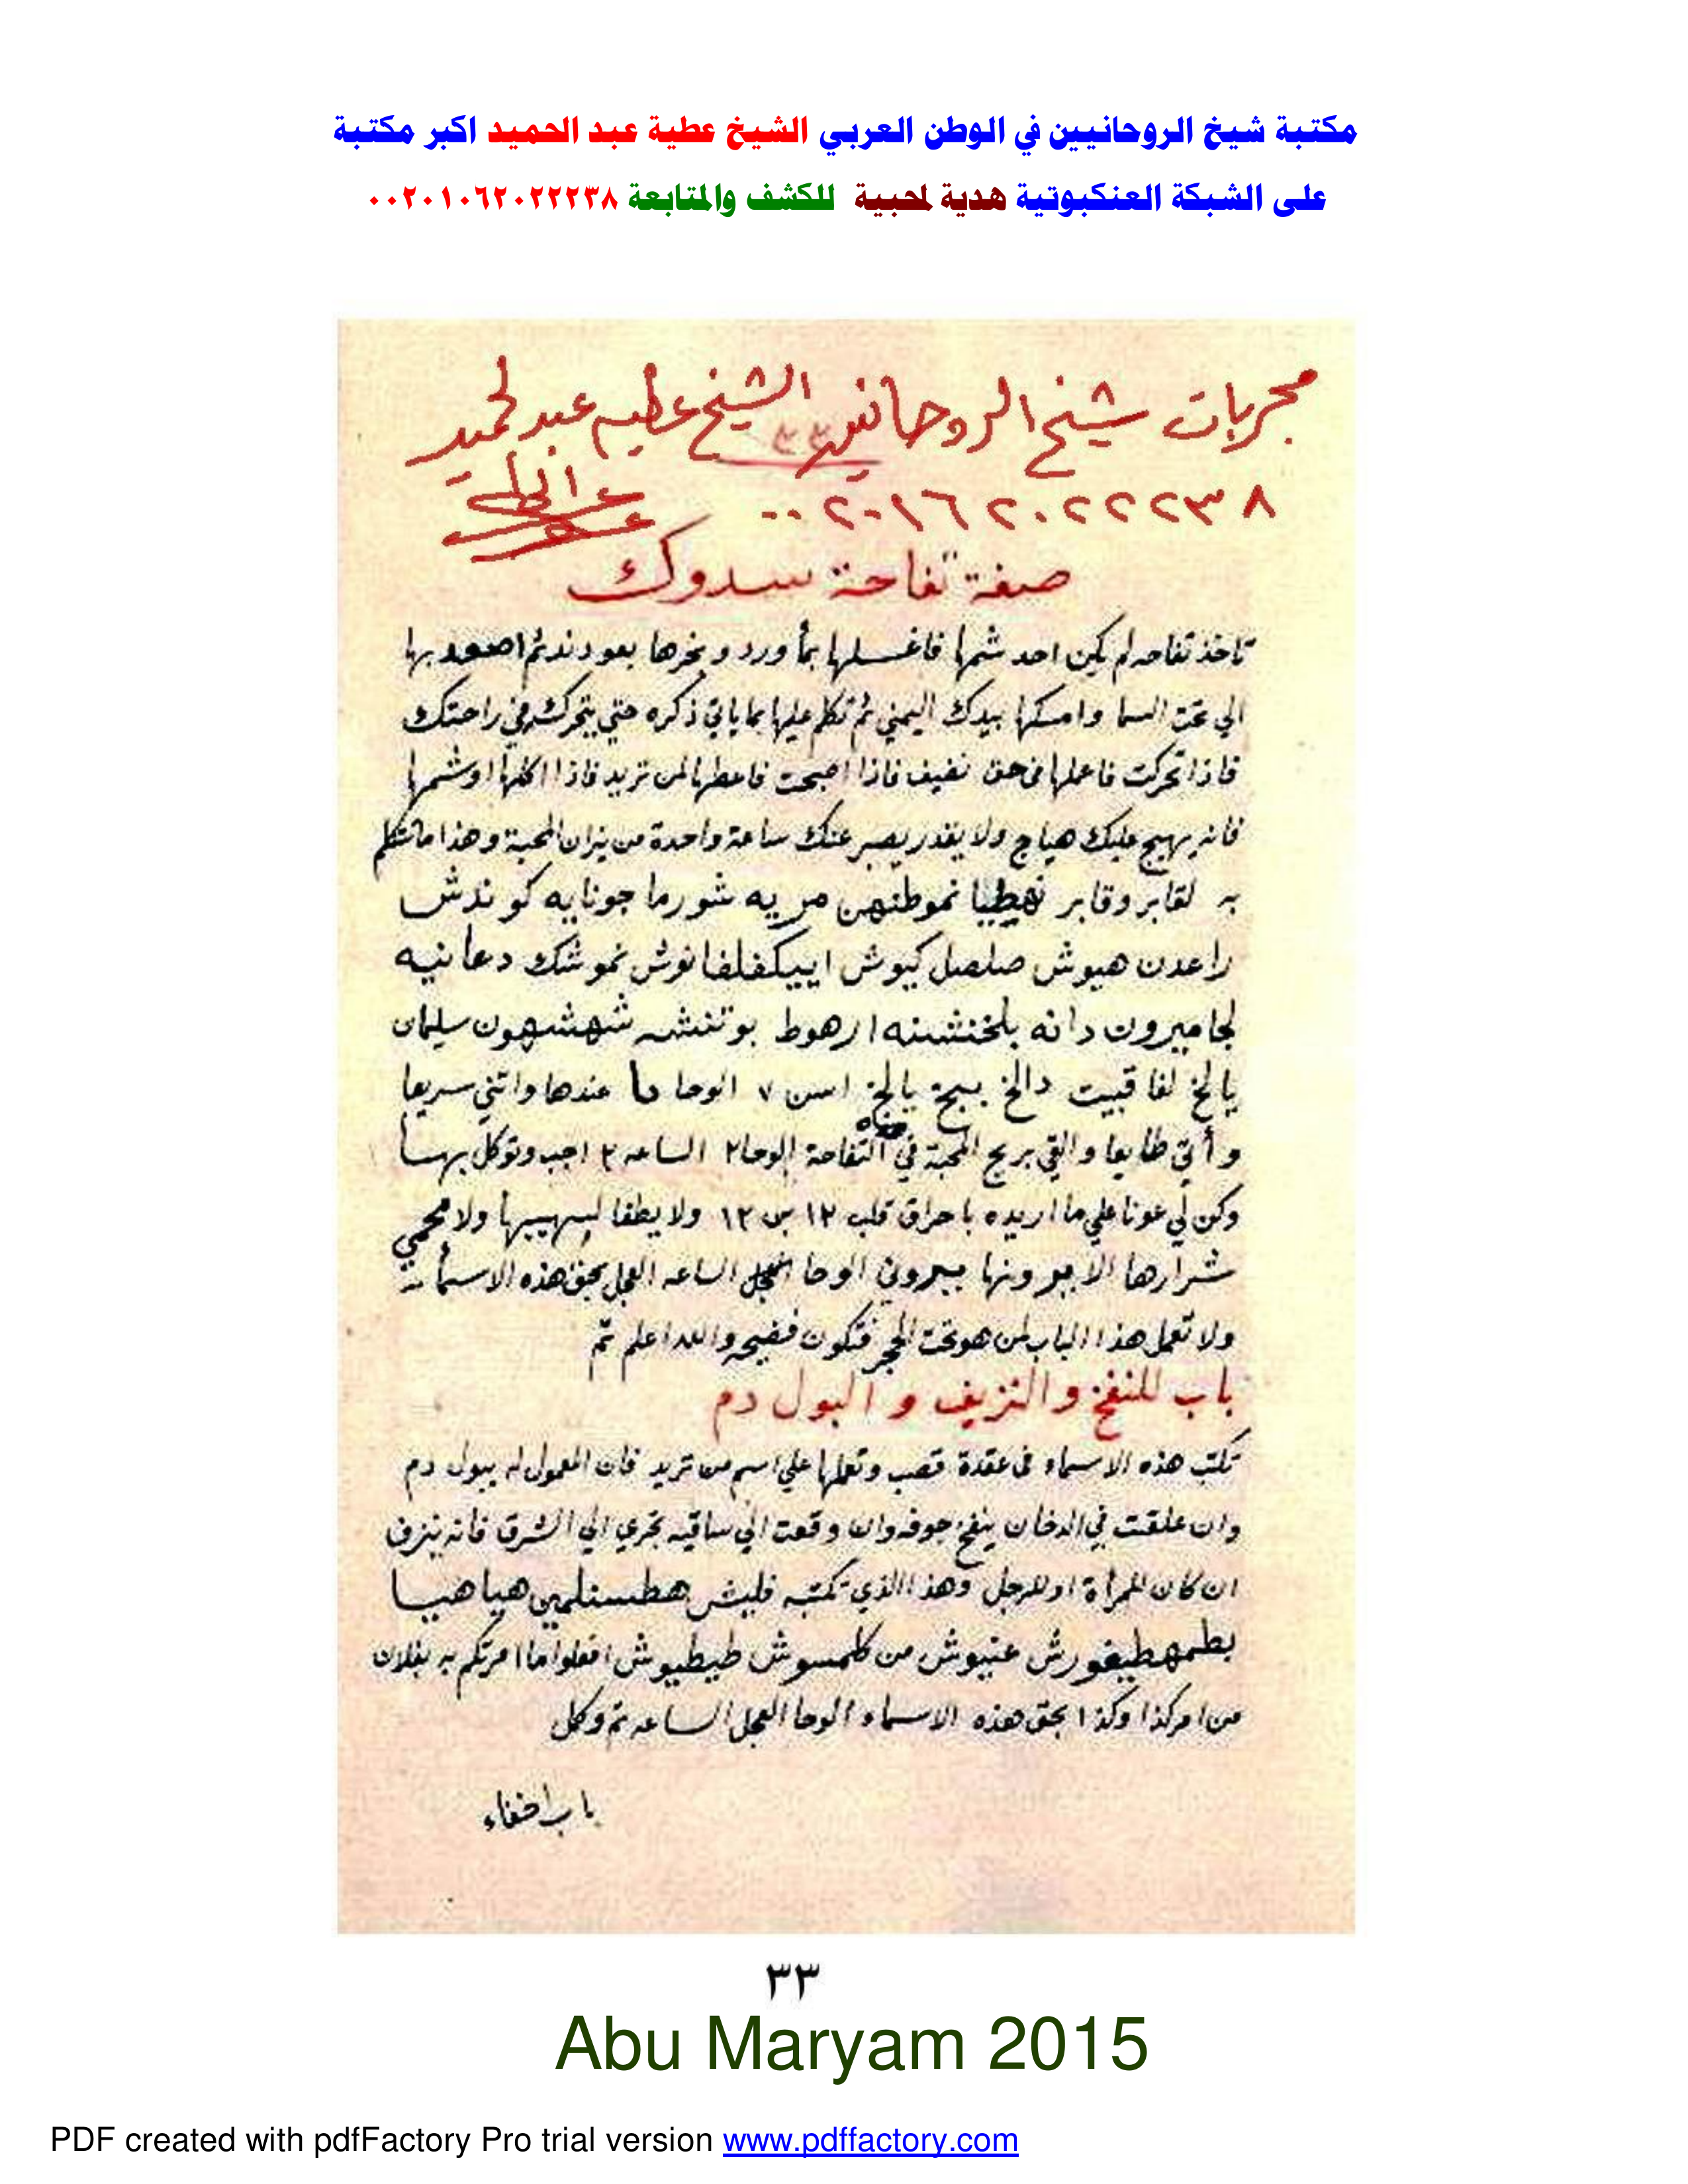 مكتبة شيخ الروحانيين في الوطن العربي الشيخ عطية عبد الحميد اكبر مكتبة
على الشبكة العنكبوتية هدية لمحبية للكشف والمتابعة ٠٠٢٠١٠٦٢٠٢٢٢٣٨
مجربات شيخ الروحانيين الشيخ عطيه عبد الحميد
٠٠٢٠١٦٢٠٢٢٢٣٨
صفة تفاحة سدوك
تاخذ تفاحه لم يكن احد شمها فاغسلها بمأ ورد وبخرها بعود ند ثم اصعد بها
الي تحت السما وامسكها بيدك اليمني ثم تكلم عليها بما ياتي ذكره حتي يتحرك في راحتك
فاذا تحركت فاعلها في حق نضيف فاذا اصبحت فاعطها لمن تريد فاذا اكلها اوشمها
فانه يهيج عليك هياج ولا يقدر يصبر عنك ساعة واحدة من نيران المحبة وهذا ما تتكلم
به لقابر وقابر نهطيا نموطنهن مريه شورما جونايه كوندش
راعدن هيوش صلصل كيوش اييكفلفانوش نموشك دعانيه
لجاميرون دانه بلخنشنه ارهوط بوتنشه شهشهون سليمان
يالخ لفا قبيت دالخ بيخ يالخ اسن ٧ الوحا ما عندها واتني سريعا
وأتي طايعا والقي بريح المحبة في التفاحة الوحا٢ الساعه ٢ اجب وتوكل بهسا
وكن لي عونا علي ما اريده باحراق قلب ١٢ بن ١٢ ولا يطفا لهيبها ولا محمي
شرارها الا بيرونها بيروني الوحا العجل الساعه العجل بحق هذه الاسمأ
ولا تعمل هذا الباب لمن هو تحت الحجر فتكون فضيحه والله اعلم تم
باب للنفخ والنزيف و البول دم
تكتب هذه الاسماء في عقدة قصب وتعملها علي اسم من تريد فان المعمول له يبول دم
وان علقت في الدخان ينفخ جوفه وان وقعت الي ساقيه تجري الي الشرق فانه ينزف
ان كان للمرأة او للرجل وهذا الذي تكتبه فليش هطسنلمين هيا هيا
بطمهطيغورش عنيوش من كلمسوش طيطيوش افعلوا ما امرتكم به بفلان
من امر كذا وكذا بحق هذه الاسماء الوحا العجل الساعه تم وكل
باب اخفاء
٣٣
Abu Maryam 2015
PDF created with pdfFactory Pro trial version www.pdffactory.com